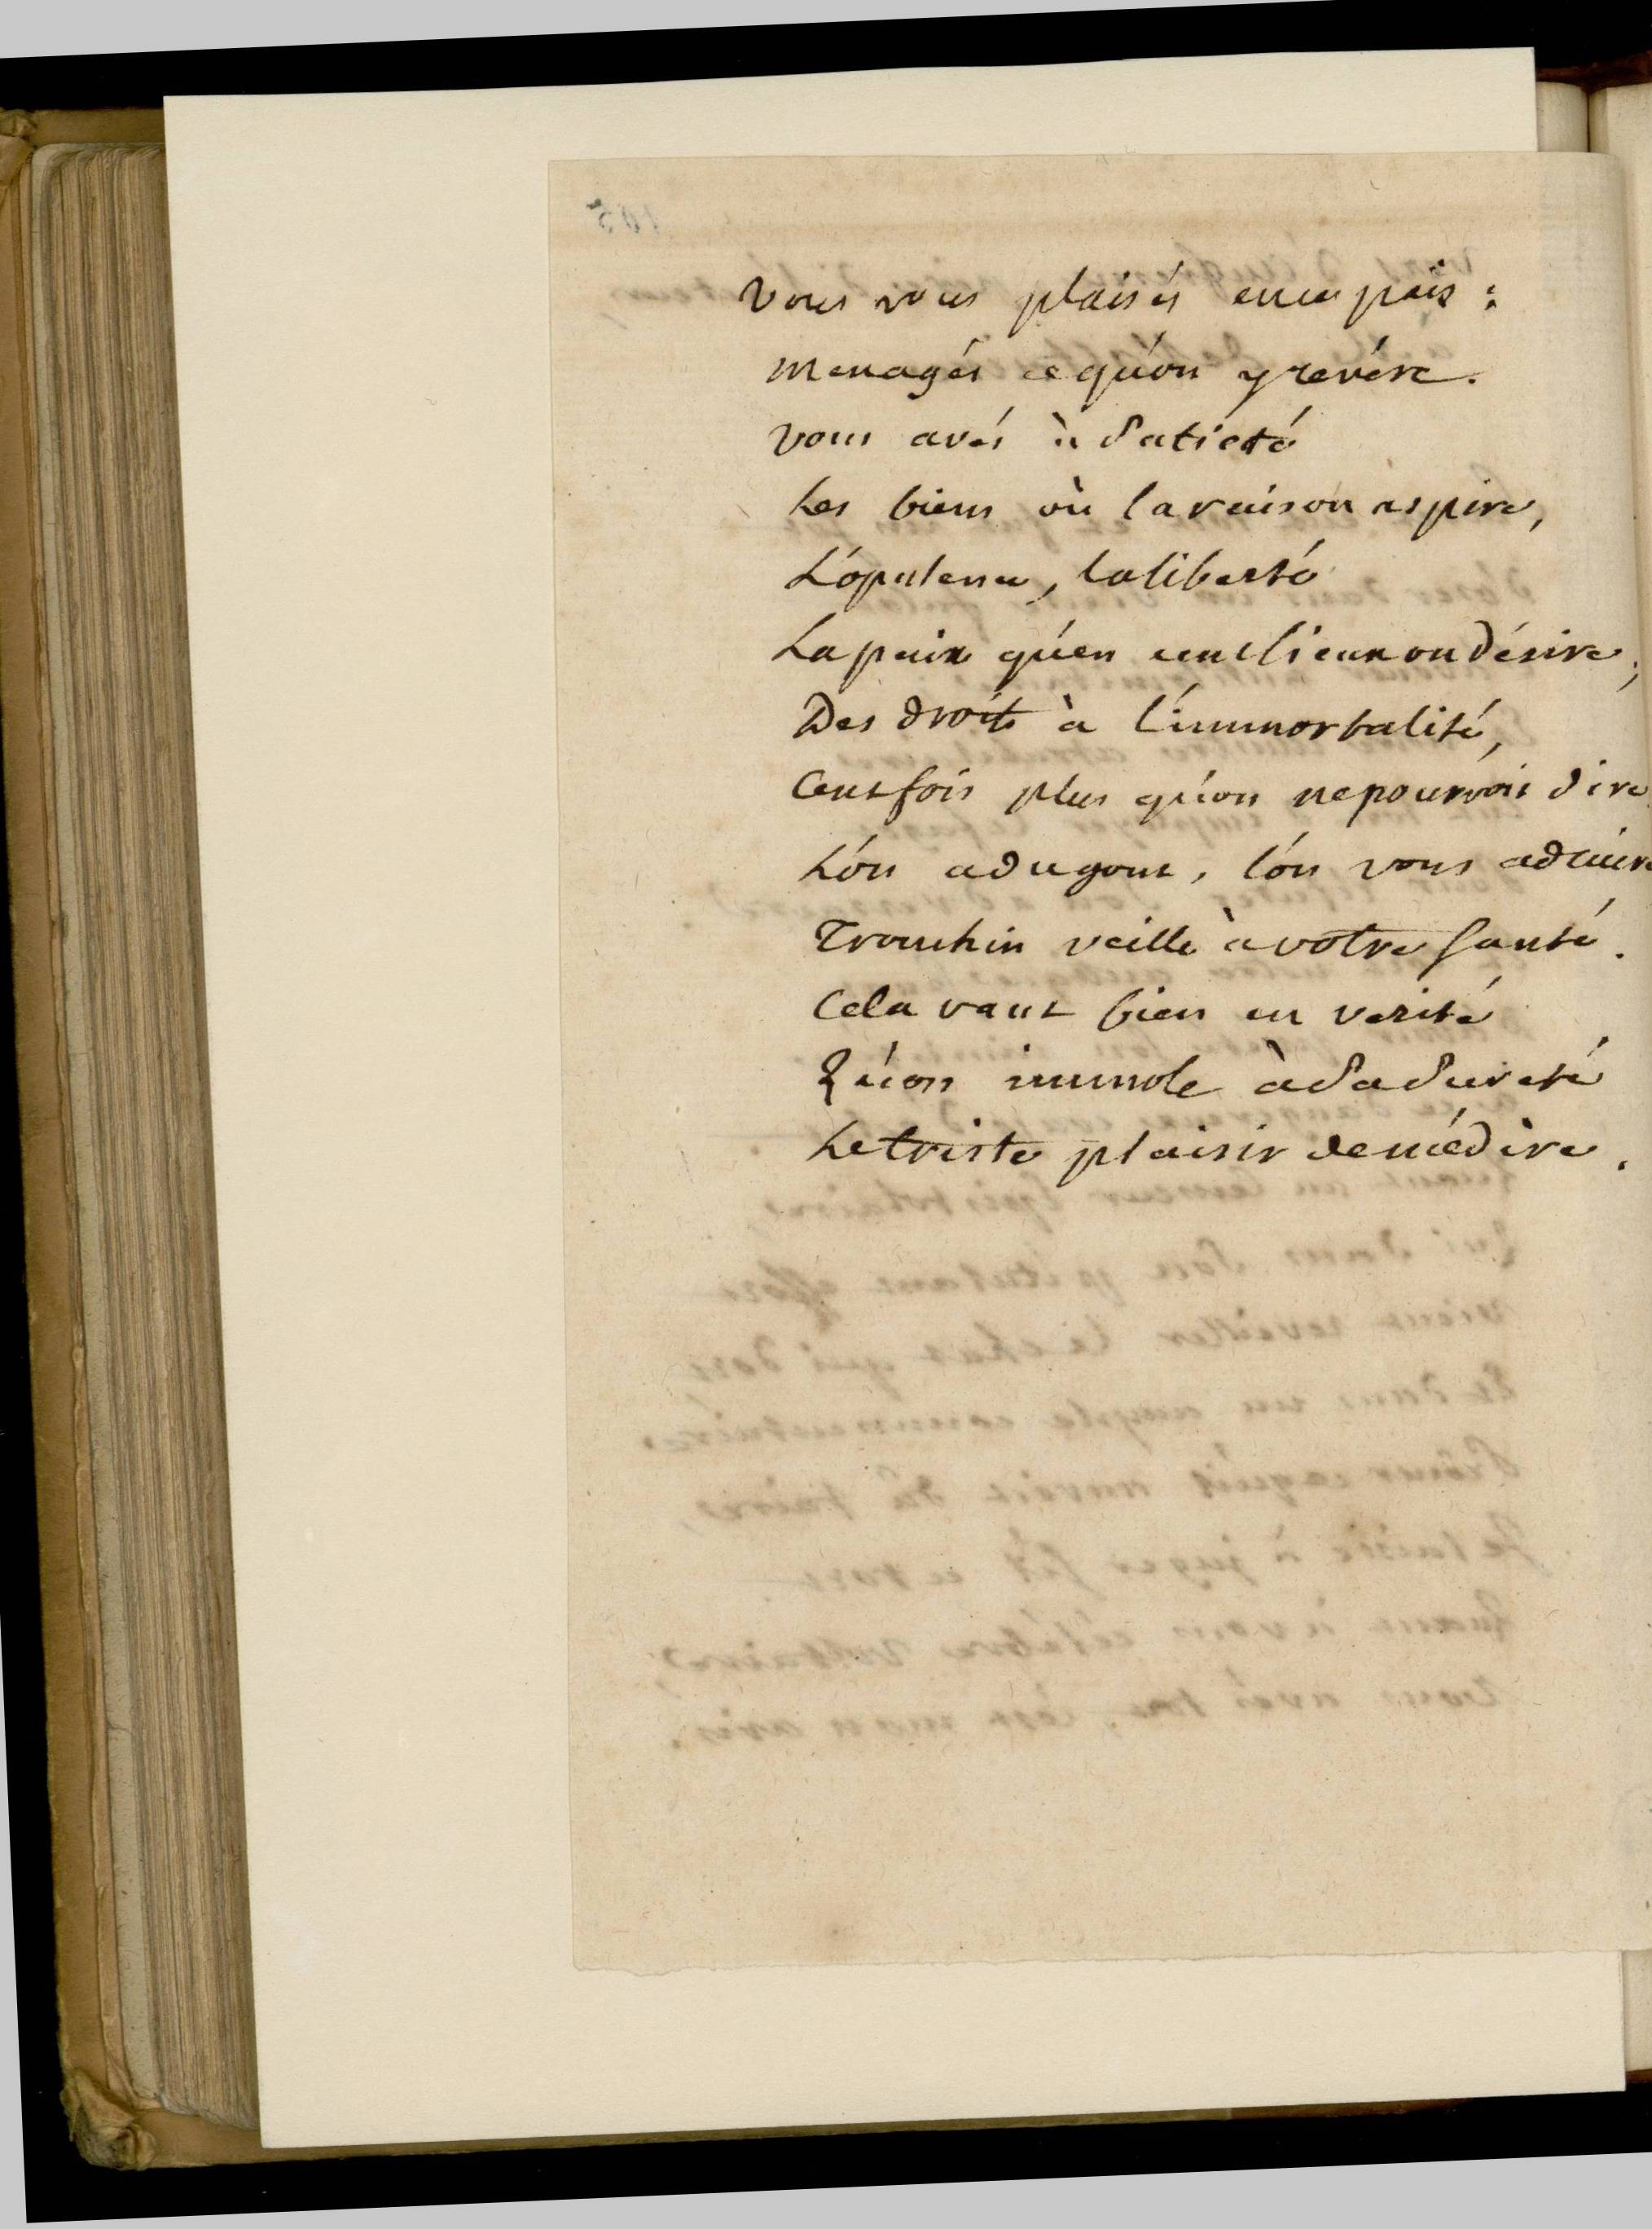 Vous vous plaisés en ce païs :
Menagés ce qu'on y revére.
Vous avés à satieté
Les biens où la raison aspire,
L'opulence, la liberté
La paix qu'en cent lieux on désire,
Des droits à l'immortalité,
Cent fois plus qu'on ne pourroit dire
L'on a du gout, l'on vous admire
Tronchin veille à votre santé.
Cela vaut bien en verité
Qu'on immole à sa sureté
Le triste plaisir de médire.